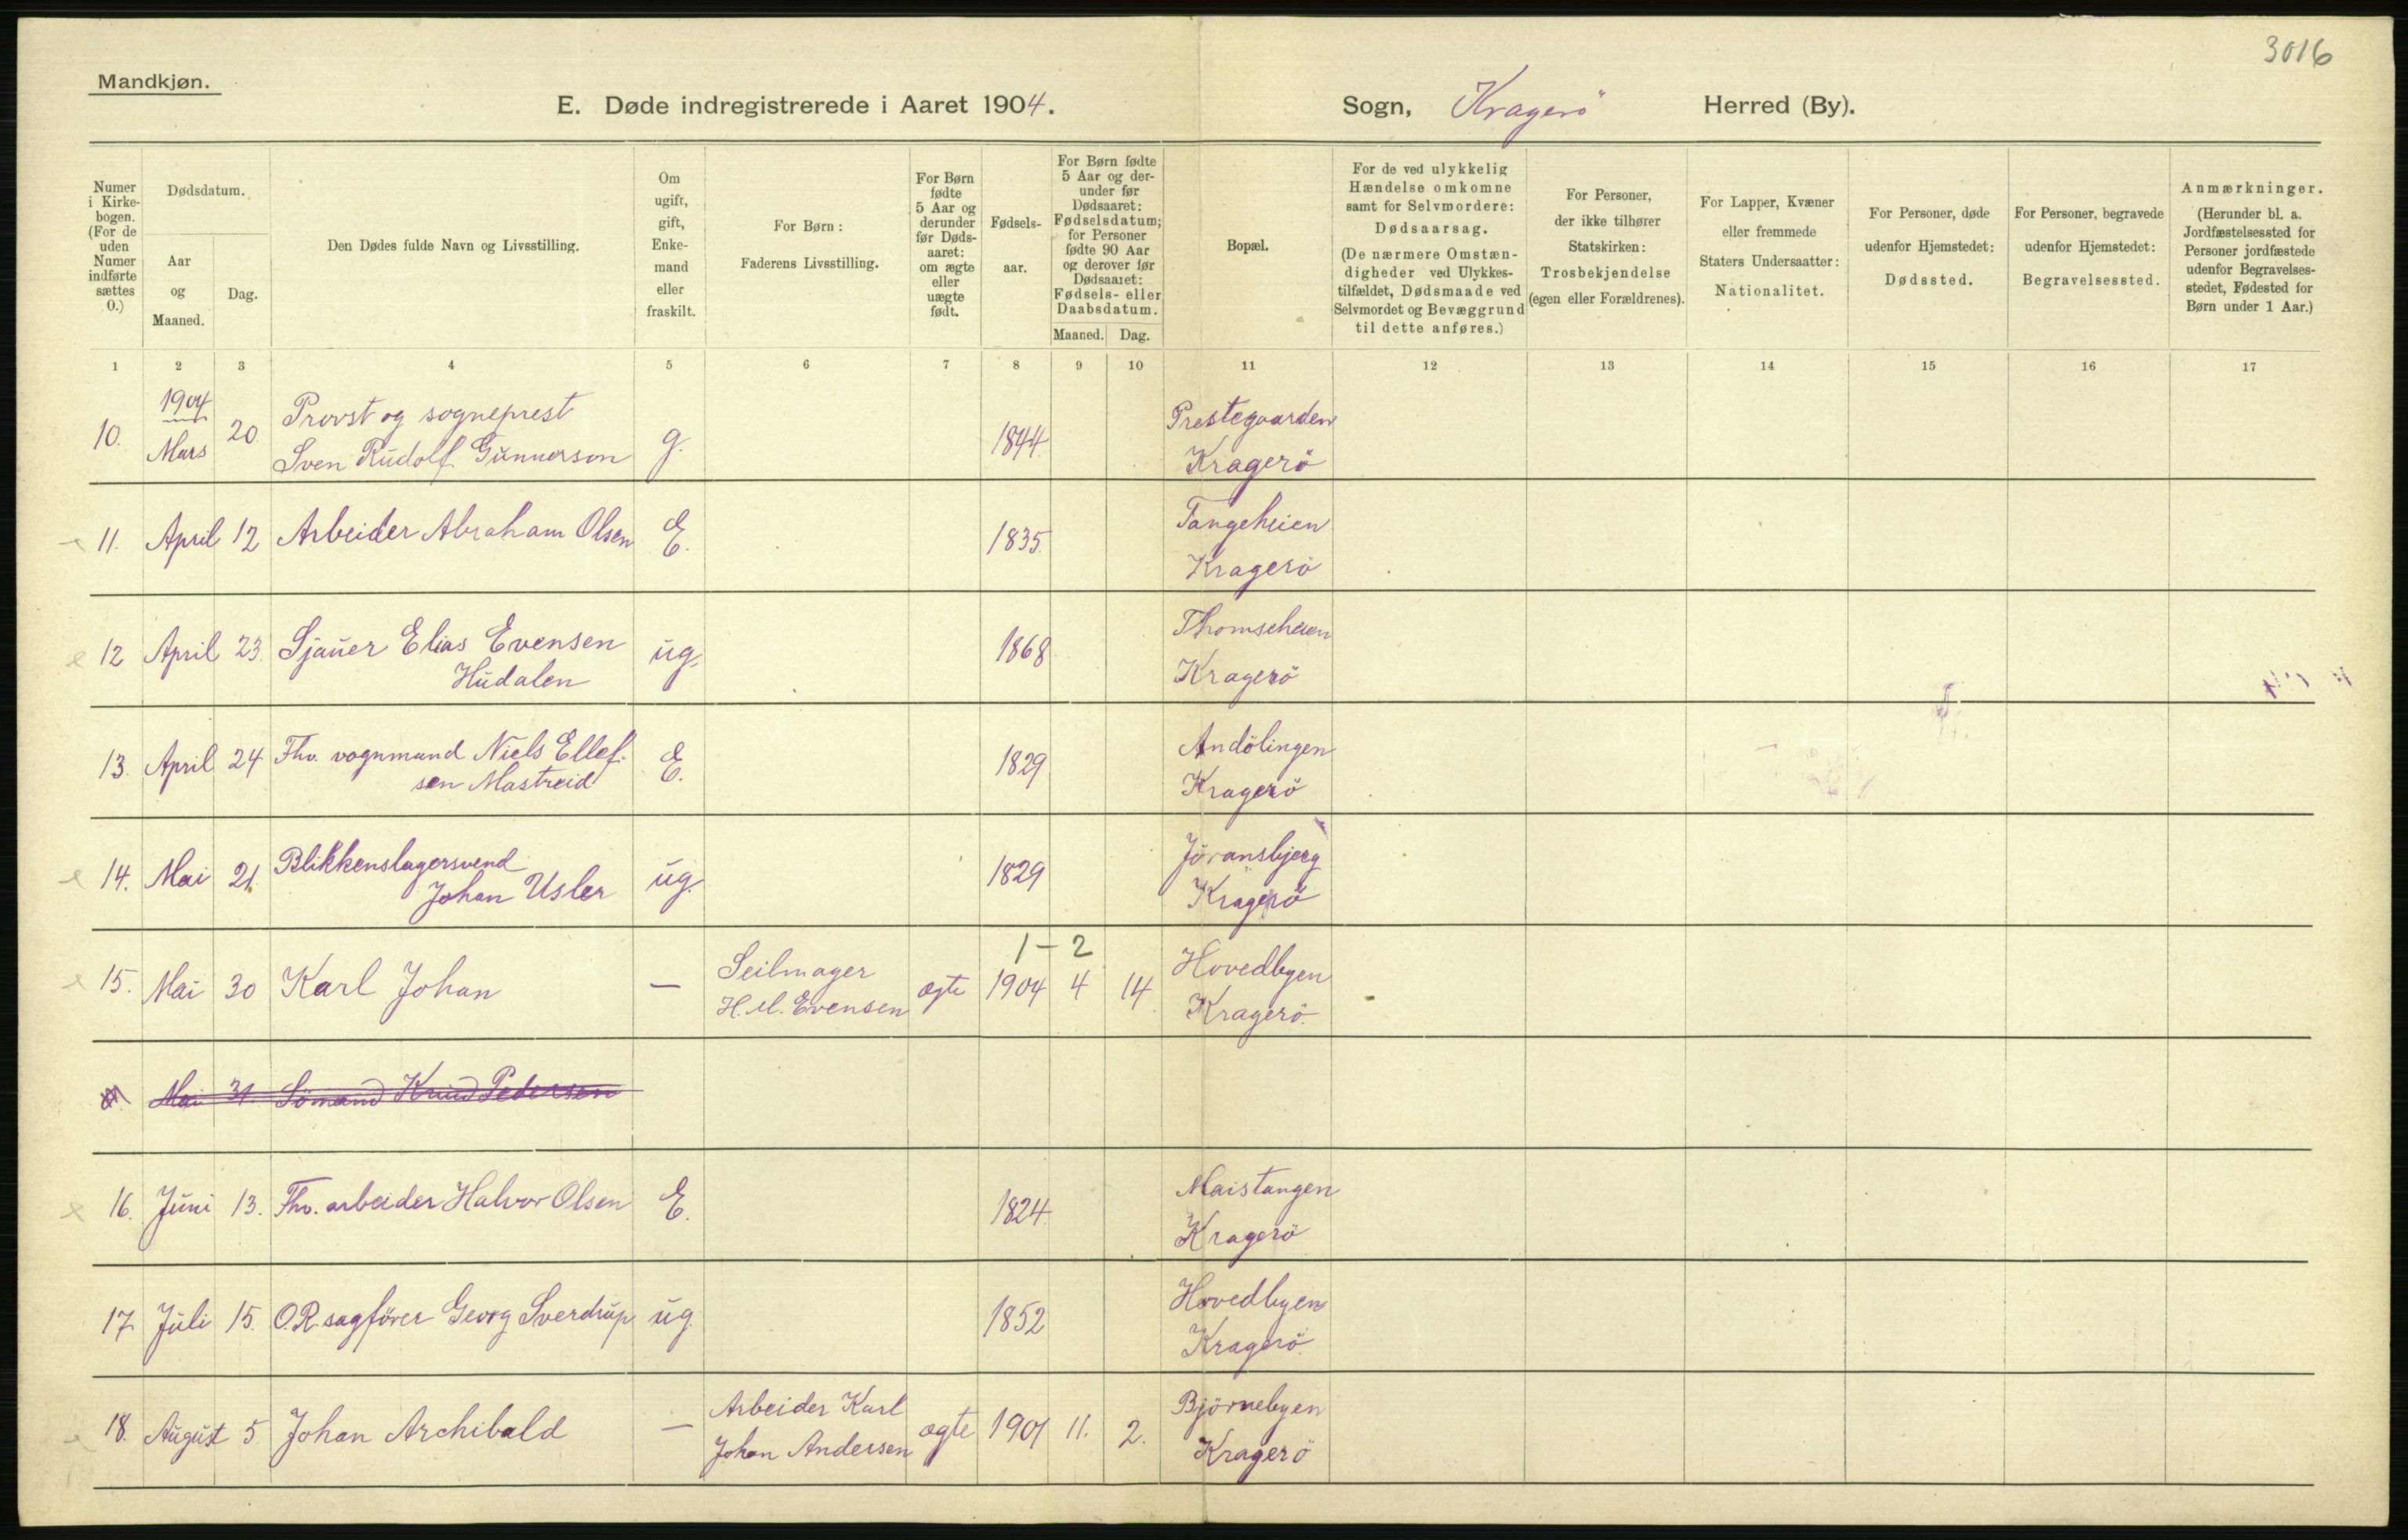 3016
Mandkjøn.
E. Døde indregistrerede i Aaret 1904. Sogn, Kragerö Herred (By).
Numer i Kirkebogen. (For de uden Numer indførte sættes 0.)
Dødsdatum.
Aar og Maaned.
Dag.
Den Dødes fulde Navn og Livsstilling.
Om ugift, gift, Enkemand eller fraskilt.
For Børn: Faderens Livsstilling.
For Børn fødte 5 Aar og derunder før Dødsaaret: om ægte eller uægte født.
Fødselsaar.
For Børn fødte 5 Aar og derunder før Dødsaaret: Fødselsdatum; for Personer fødte 90 Aar og derover før Dødsaaret: Fødsels- eller Daabsdatum.
Maaned. Dag.
Bopæl.
For de ved ulykkelig Hændelse omkomne samt for Selvmordere: Dødsaarsag. (De nærmere Omstændigheder ved Ulykkestilfældet, Dødsmaade ved Selvmordet og Bevæggrund til dette anføres.)
For Personer, der ikke tilhører Statskirken: Trosbekjendelse (egen eller Forældrenes).
For Lapper, Kvæner eller fremmede Staters Undersaatter: Nationalitet.
For Personer, døde udenfor Hjemstedet: Dødssted.
For Personer, begravede udenfor Hjemstedet: Begravelsessted.
Anmærkninger. (Herunder bl. a. Jordfæstelsessted for Personer jordfæstede udenfor Begravelsesstedet, Fødested for Børn under 1 Aar.)
1 2 3 4 5 6 7 8 9 10 11 12 13 14 15 16 17
1904
10. Mars 20. Provst og sogneprest Sven Rudolf Gunnerson g. 1844. Prestegaarden Kragerö
11. April 12 Arbeider Abraham Olsen E. 1835. Tangeheien Kragerö
12 April 23. Sjauer Elias Evensen Hudalen ug. 1868 Thomseheien Kragerö
13. April 24 Fhv. vognmand Niels Ellefsen Mastreid E. 1829 Andölingen Kragerö
14. Mai 21. Blikkenslagersvend Johan Usler ug. 1829 Jöransbjerg Kragerö
1 - 2
15. Mai 30 Karl Johan — Seilmager H. M. Evensen ægte 1904 4 14. Hovedbyen Kragerö.
Mai 31. Sömand Knud Pedersen
16. Juni 13. Fhv. arbeider Halvor Olsen E. 1824. Maistangen Kragerö
17. Juli 15. O.R. sagförer Georg Sverdrup ug. 1852 Hovedbyen Kragerö.
18. August 5. Johan Archibald — Arbeider Karl Johan Andersen ægte 1901 11. 2. Björnebyen Kragerö